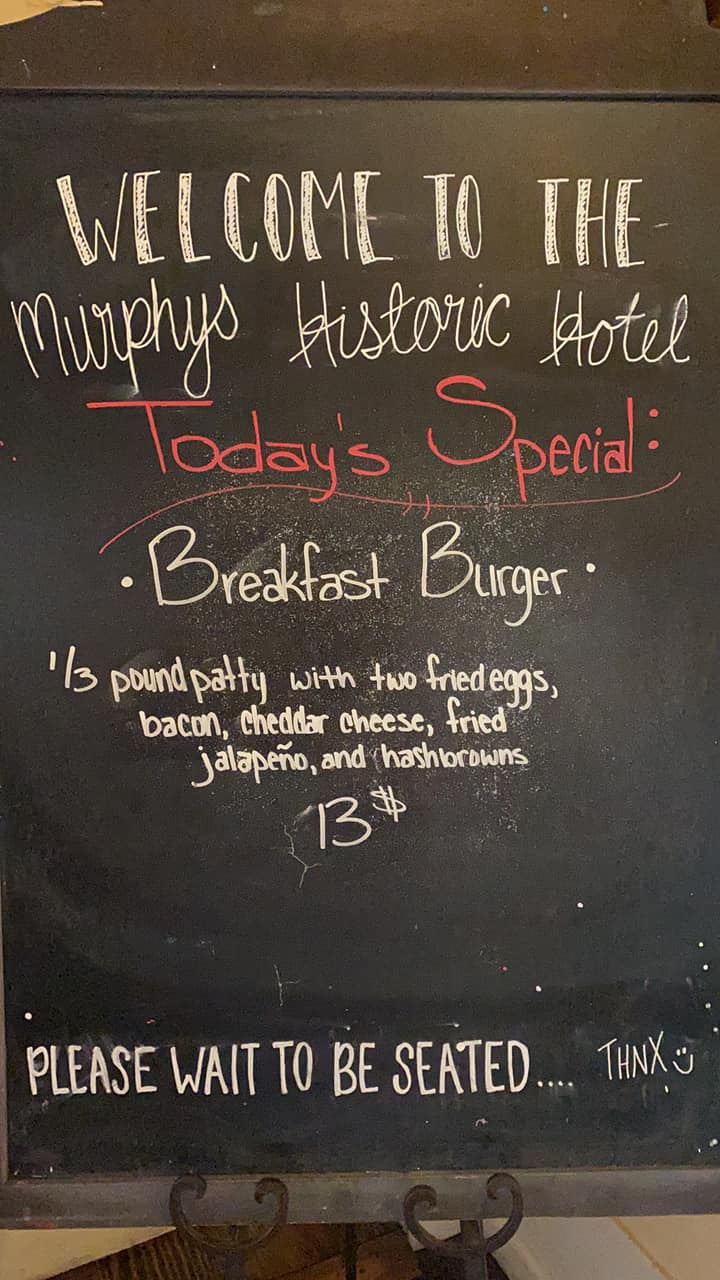 WELCOME TO THE
Murphys Historic Hotel
Today's Special:
• Breakfast Burger •
1/3 pound patty with two fried eggs,
bacon, cheddar cheese, fried
jalapeño, and hashbrowns
13$
PLEASE WAIT TO BE SEATED.... THNX :)